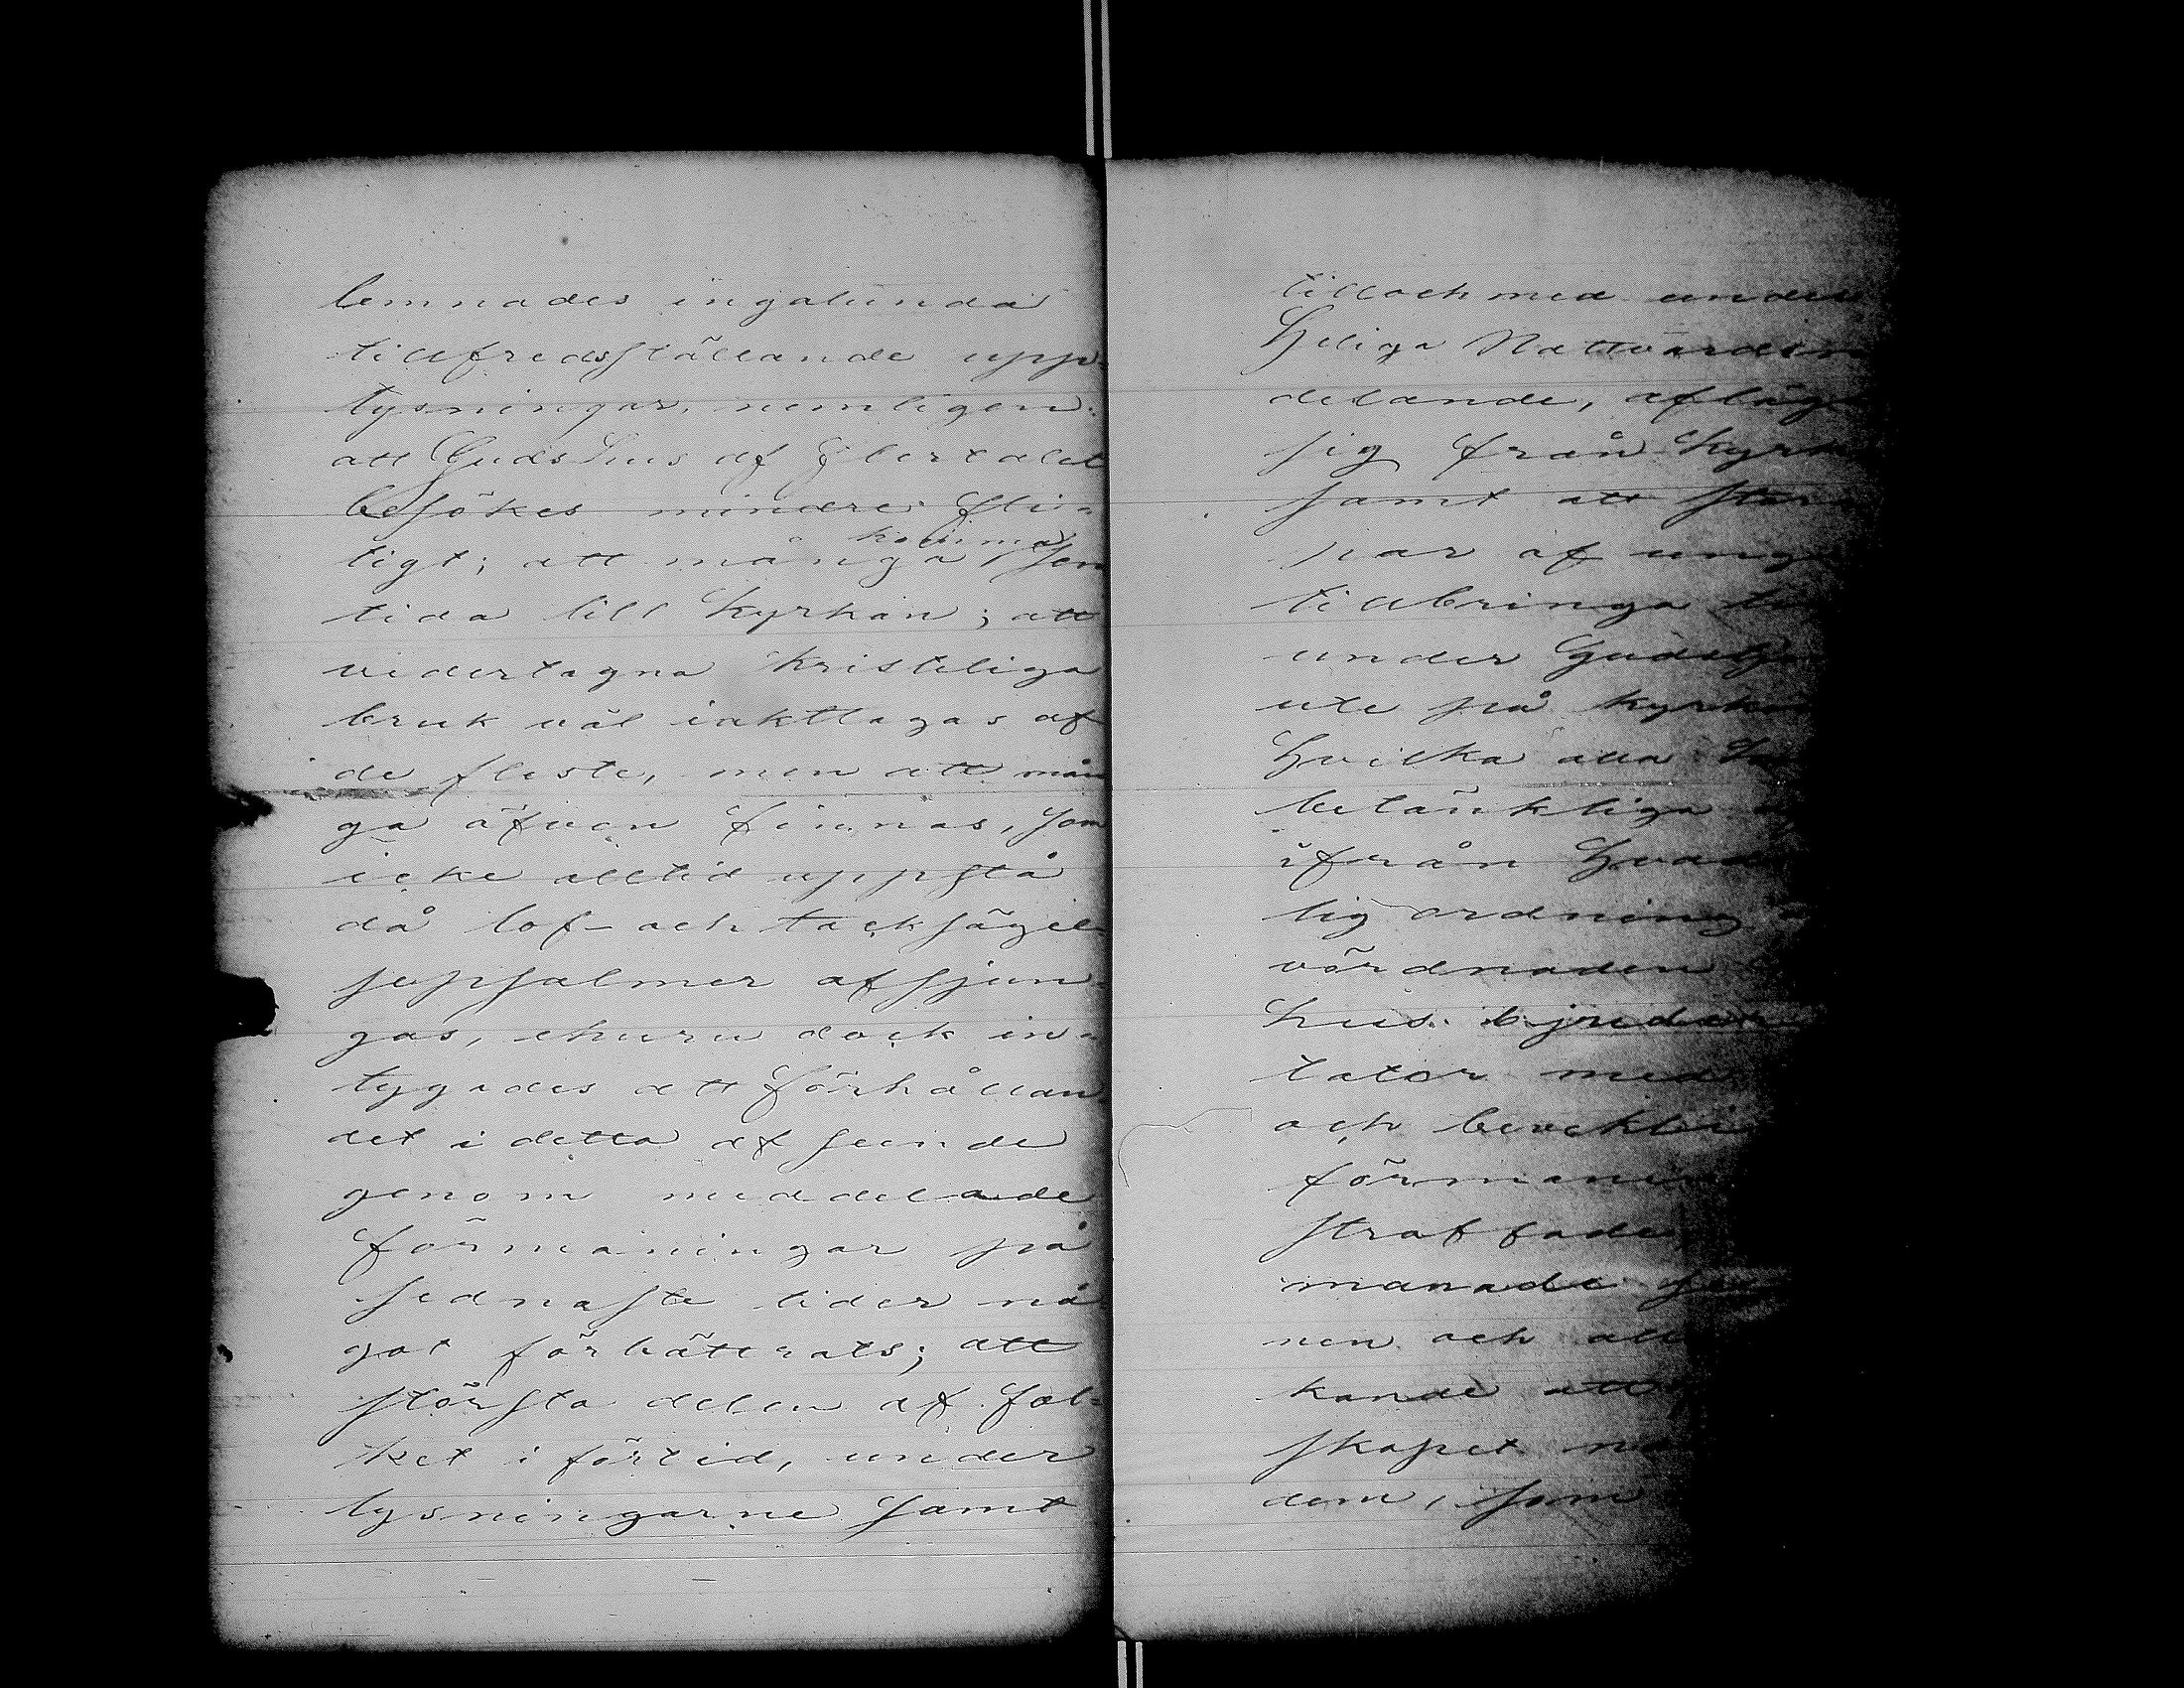 lemnades ingalunda
tillfredsställande upp-
lysningar, nemligen:
att Guds hus af flertalet
besökes mindre fli-
komma
tigt; att många sen
tida till Kyrkan; att
vedertagna kristeliga
bruk väl iakttagas af
de fleste, men att mån
ga äfven finnas, som
icke alltid uppstå
då lof- och tacksägel-
sepsalmer afsjun-
gas, ehuru dock in-
tygades att förhållan
det i detta afseende
genom meddelade
förmaningar på
sednaste tider nå-
got förbättrats; att
största delen af fol-
ket i förtid, under
lysningarne samt
till och med under
Heliga Nattvardens
delande, afläg
sig från Kyrk
samt att stora
par af unge
tillbringa
under Gudstj
ute på kyrko
Hvilka alla
betänkliga
ifrån hvad
lig ordning
vördnaden
hus bjuder
tator med
och beveklig
förmani
straffade
manade
nen och all
kande att
skapet
dem, som